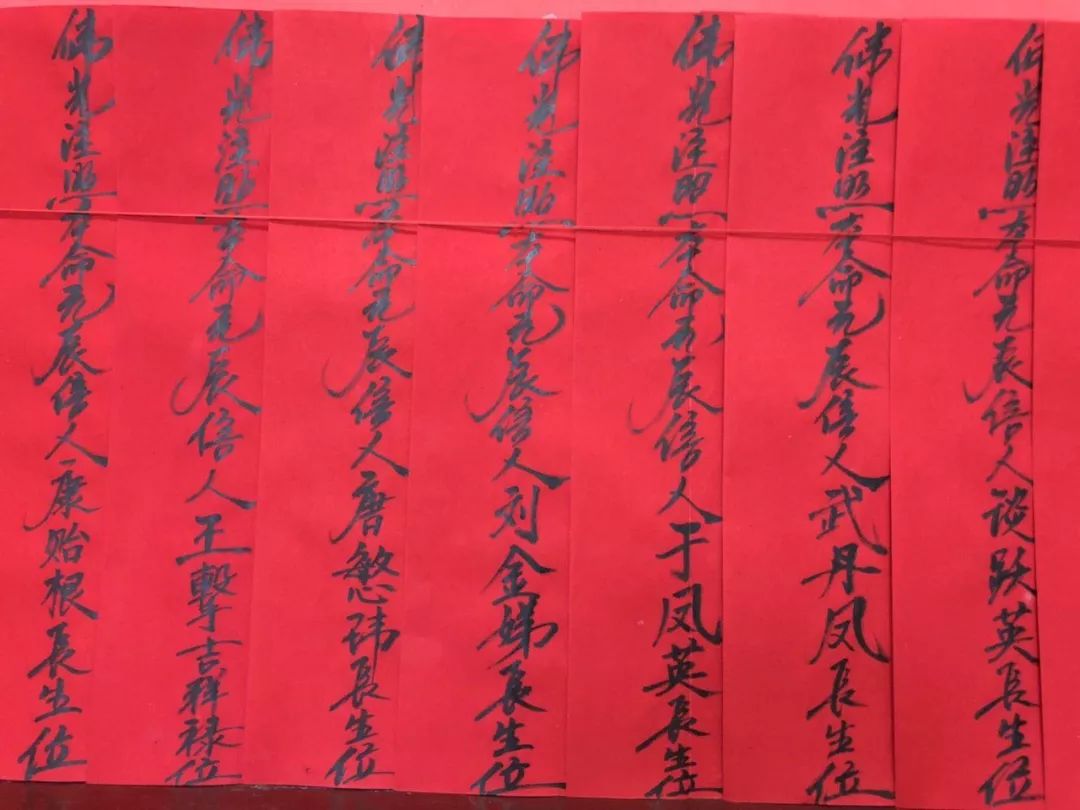 佛光注照本命元辰信人谈跃英長生位
佛光注照本命元辰信人武丹凤長生位
佛光注照本命元辰信人于凤英長生位
佛光注照本命元辰信人刘金娣長生位
佛光注照本命元辰信人唐慜祎長生位
佛光注照本命元辰信人王擊吉祥禄位
佛光注照本命元辰信人康贻根長生位